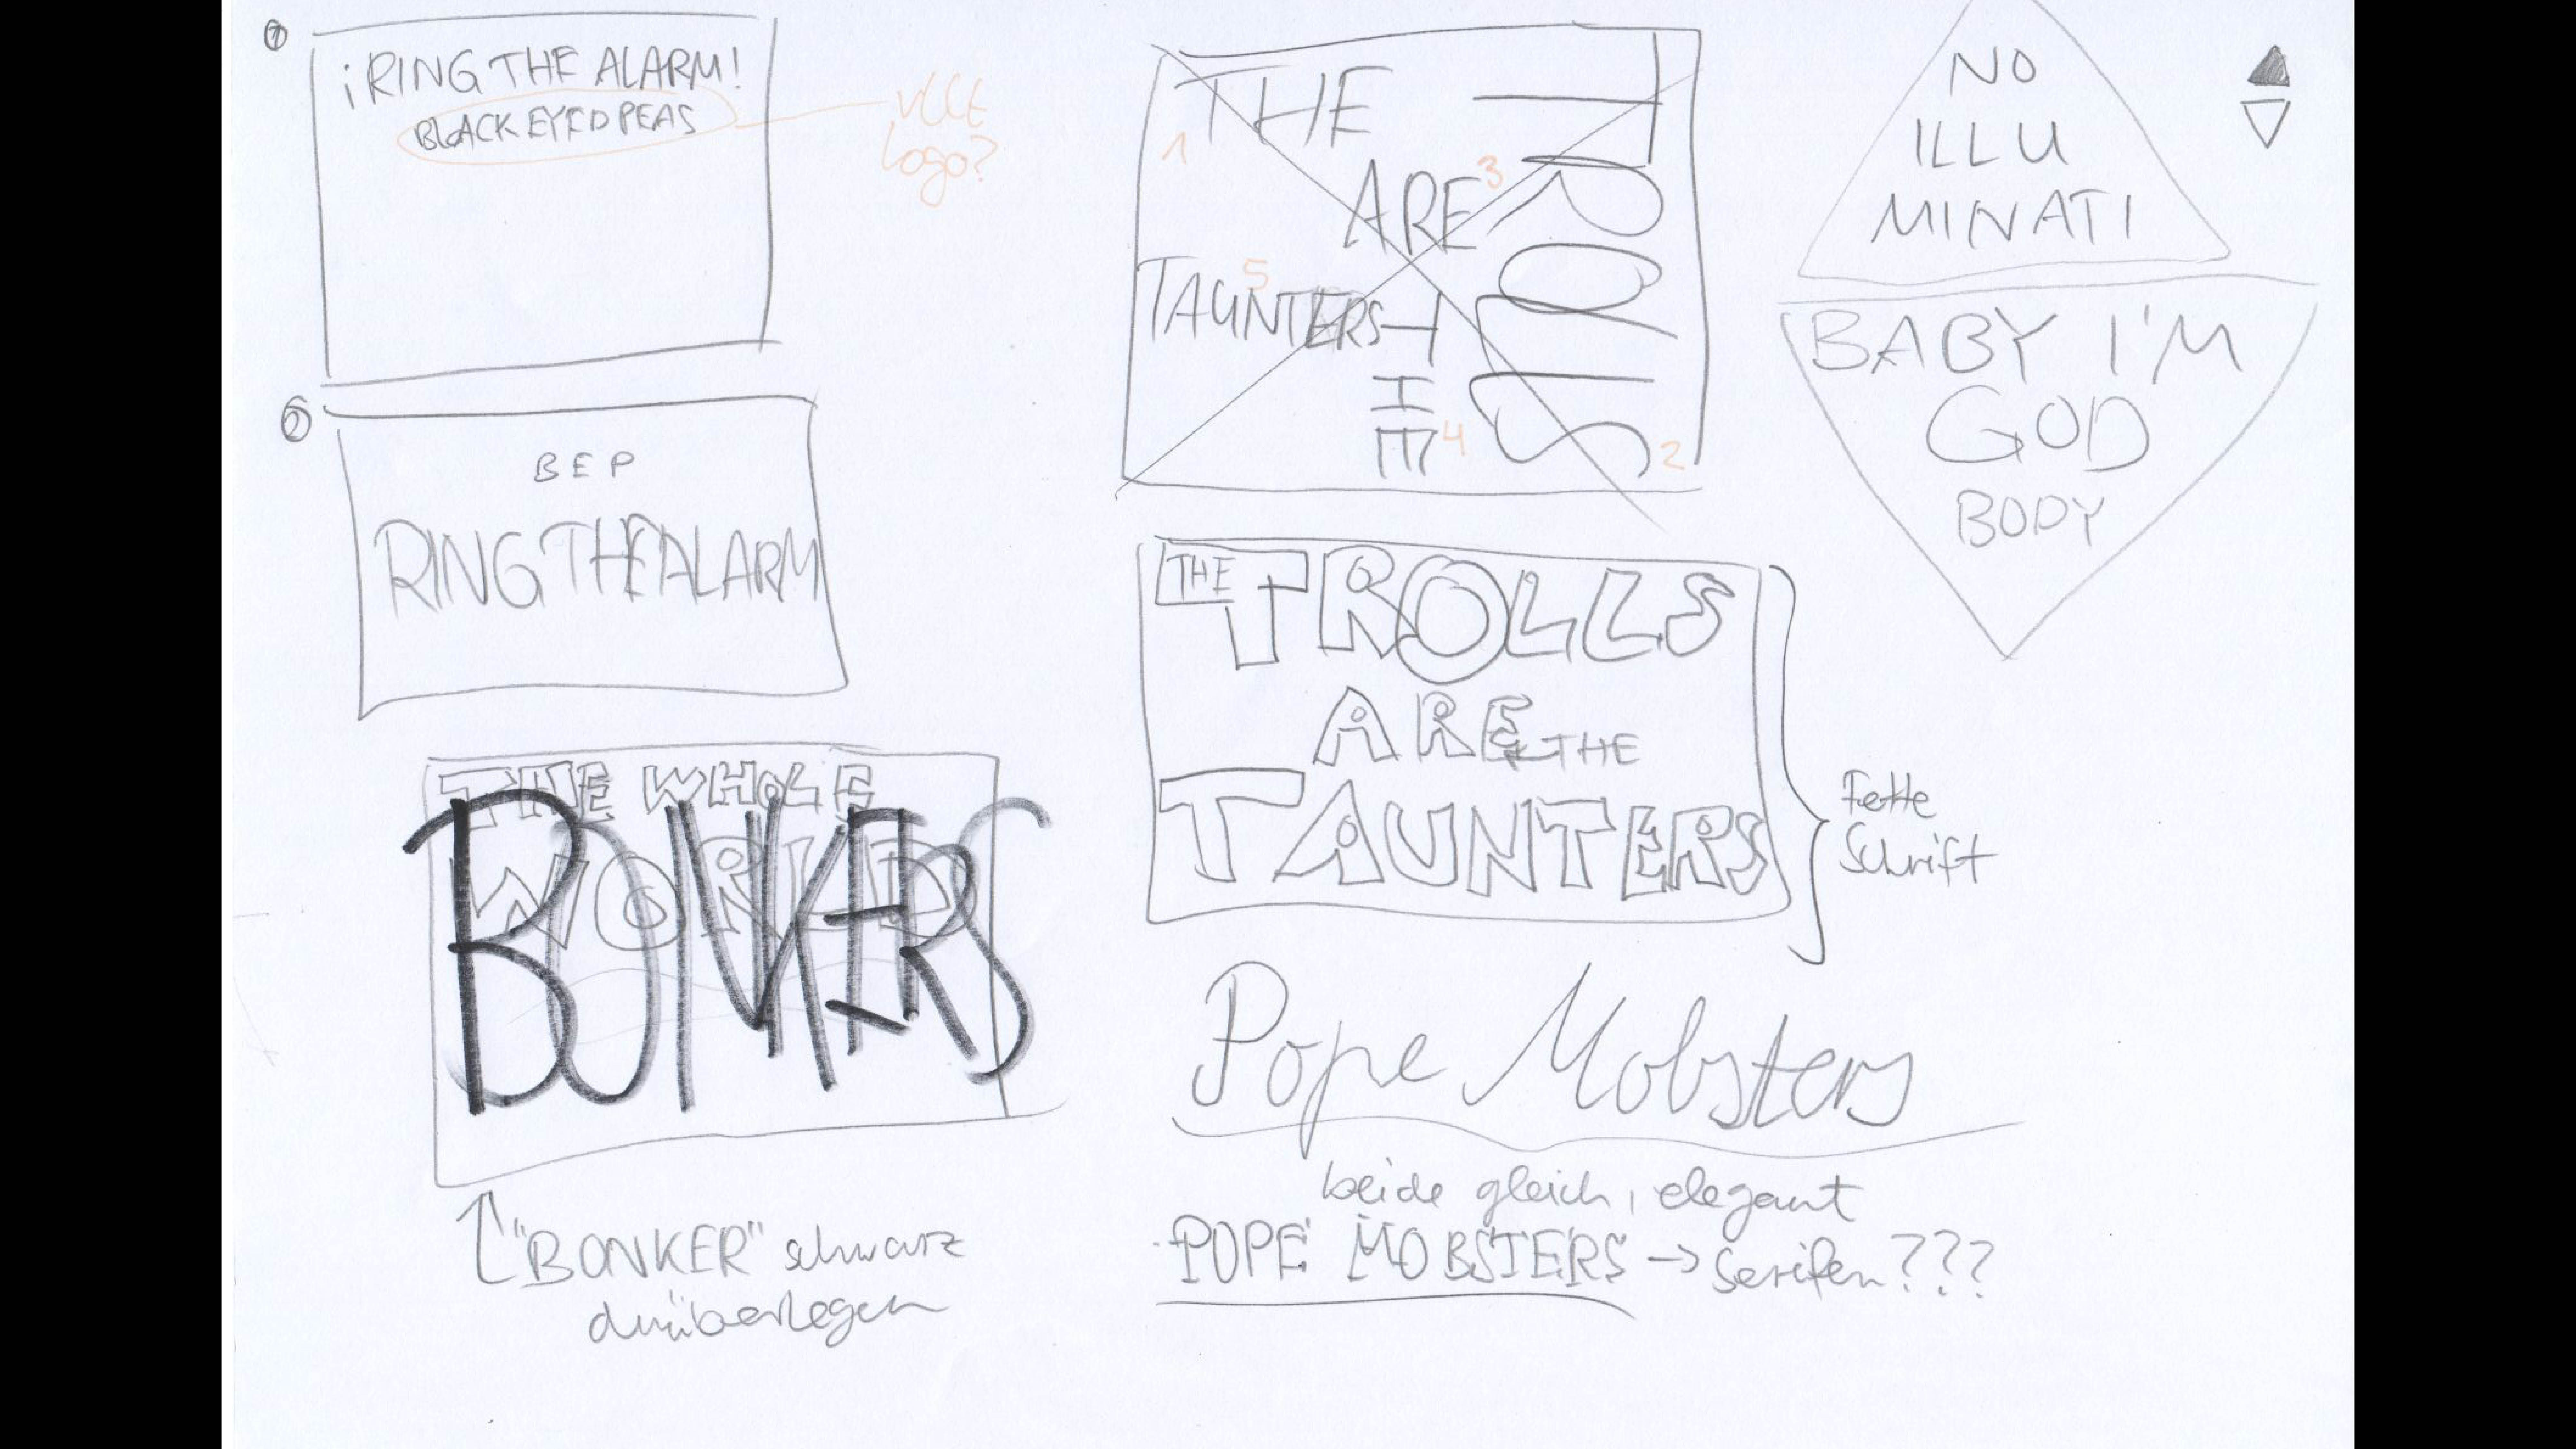 1
¡RING THE ALARM!
BLACK EYED PEAS
Logo?
2
BEP
RING THE ALARM
THE WHOLE
WORLD
BONKERS
↑ "BONKER" schwarz
drüberlegen
THE
TROLLS
ARE
THE
TAUNTERS
1
2
3
4
5
THE TROLLS
ARE THE
TAUNTERS
Fette
Schrift
Pope Mobsters
beide gleich, elegant
POPE MOBSTERS → Serifen???
NO
ILLU
MINATI
BABY I'M
GOD
BODY